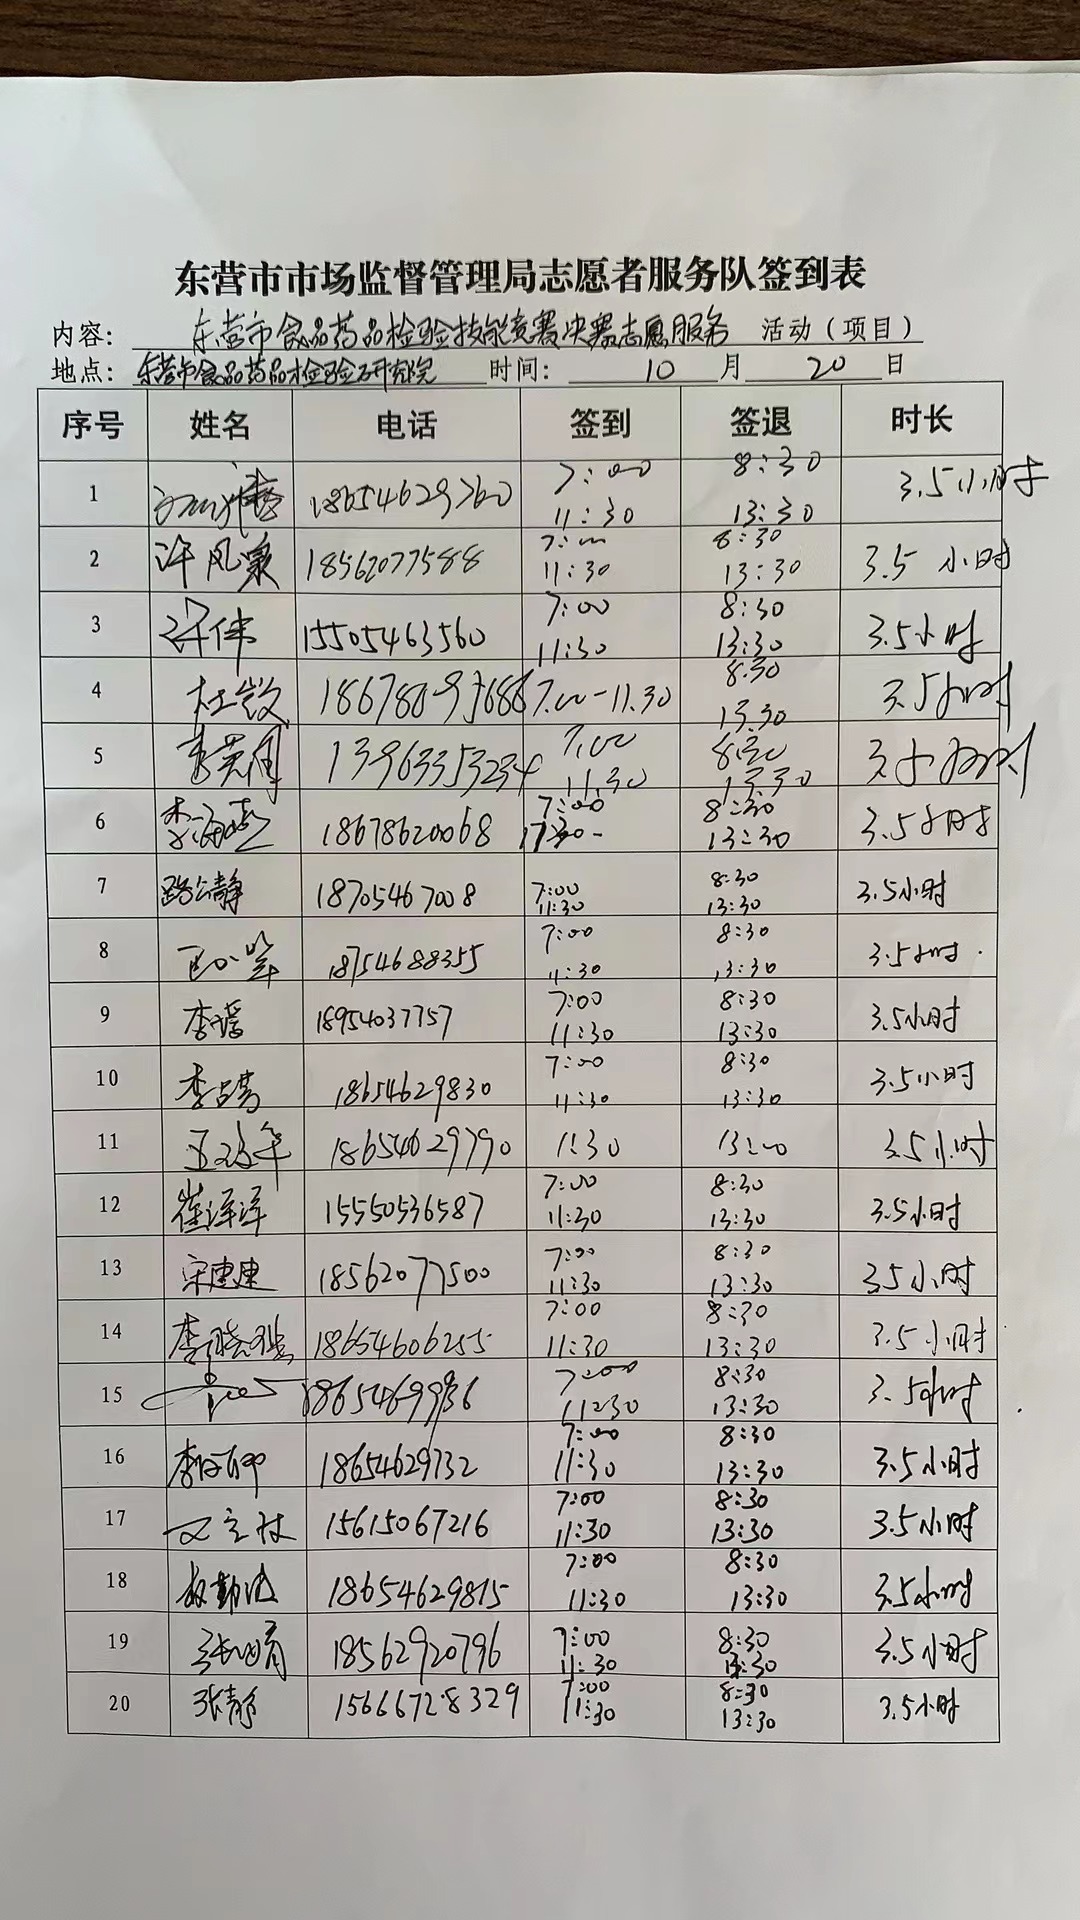 东营市市场监督管理局志愿者服务队签到表
内容：东营市食品药品检验技能竞赛决赛志愿服务 活动（项目）
地点：东营市食品药品检验研究院 时间：10月20日
序号 姓名 电话 签到 签退 时长
1 18654629760 7:00 11:30 8:30 13:30 3.5小时
2 许风泉 18562077588 7:00 11:30 8:30 13:30 3.5 小时
3 许伟 15505463560 7:00 11:30 8:30 13:30 3.5小时
4 杜敏 7.00-11.30 8.30 13.30 3.5小时
5 13963353234 7.00 11.30 8:30 13.30 3.5小时
6 李海燕 18678620068 7:00 8:30 13:30 3.5小时
7 路静 18705467008 7:00 11:30 8:30 13:30 3.5小时
8 18754688355 7:00 11:30 8:30 13:30 3.5小时
9 李瑶 18954037757 7:00 11:30 8:30 13:30 3.5小时
10 18654629830 7:00 11:30 8:30 13:30 3.5小时
11 18654629790 11:30 13:00 3.5小时
12 崔泽泽 15550536587 7:00 11:30 8:30 13:30 3.5小时
13 宋建建 18562077500 7:00 11:30 8:30 13:30 3.5小时
14 李晓 18654606255 7:00 11:30 8:30 13:30 3.5小时
15 7:00 11:30 8:30 13:30 3.5小时
16 18654629732 7:00 11:30 8:30 13:30 3.5小时
17 15615067216 7:00 11:30 8:30 13:30 3.5小时
18 18654629815 7:00 11:30 8:30 13:30 3.5小时
19 18562920796 7:00 11:30 8:30 13:30 3.5小时
20 张静 15666728329 7:00 11:30 8:30 13:30 3.5小时